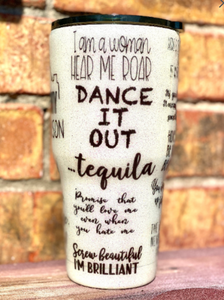 I am a woman
HEAR ME ROAR
DANCE
IT
OUT
...tequila
Promise that
you'll love me
even when
you hate me
Screw beautiful
I'M BRILLIANT